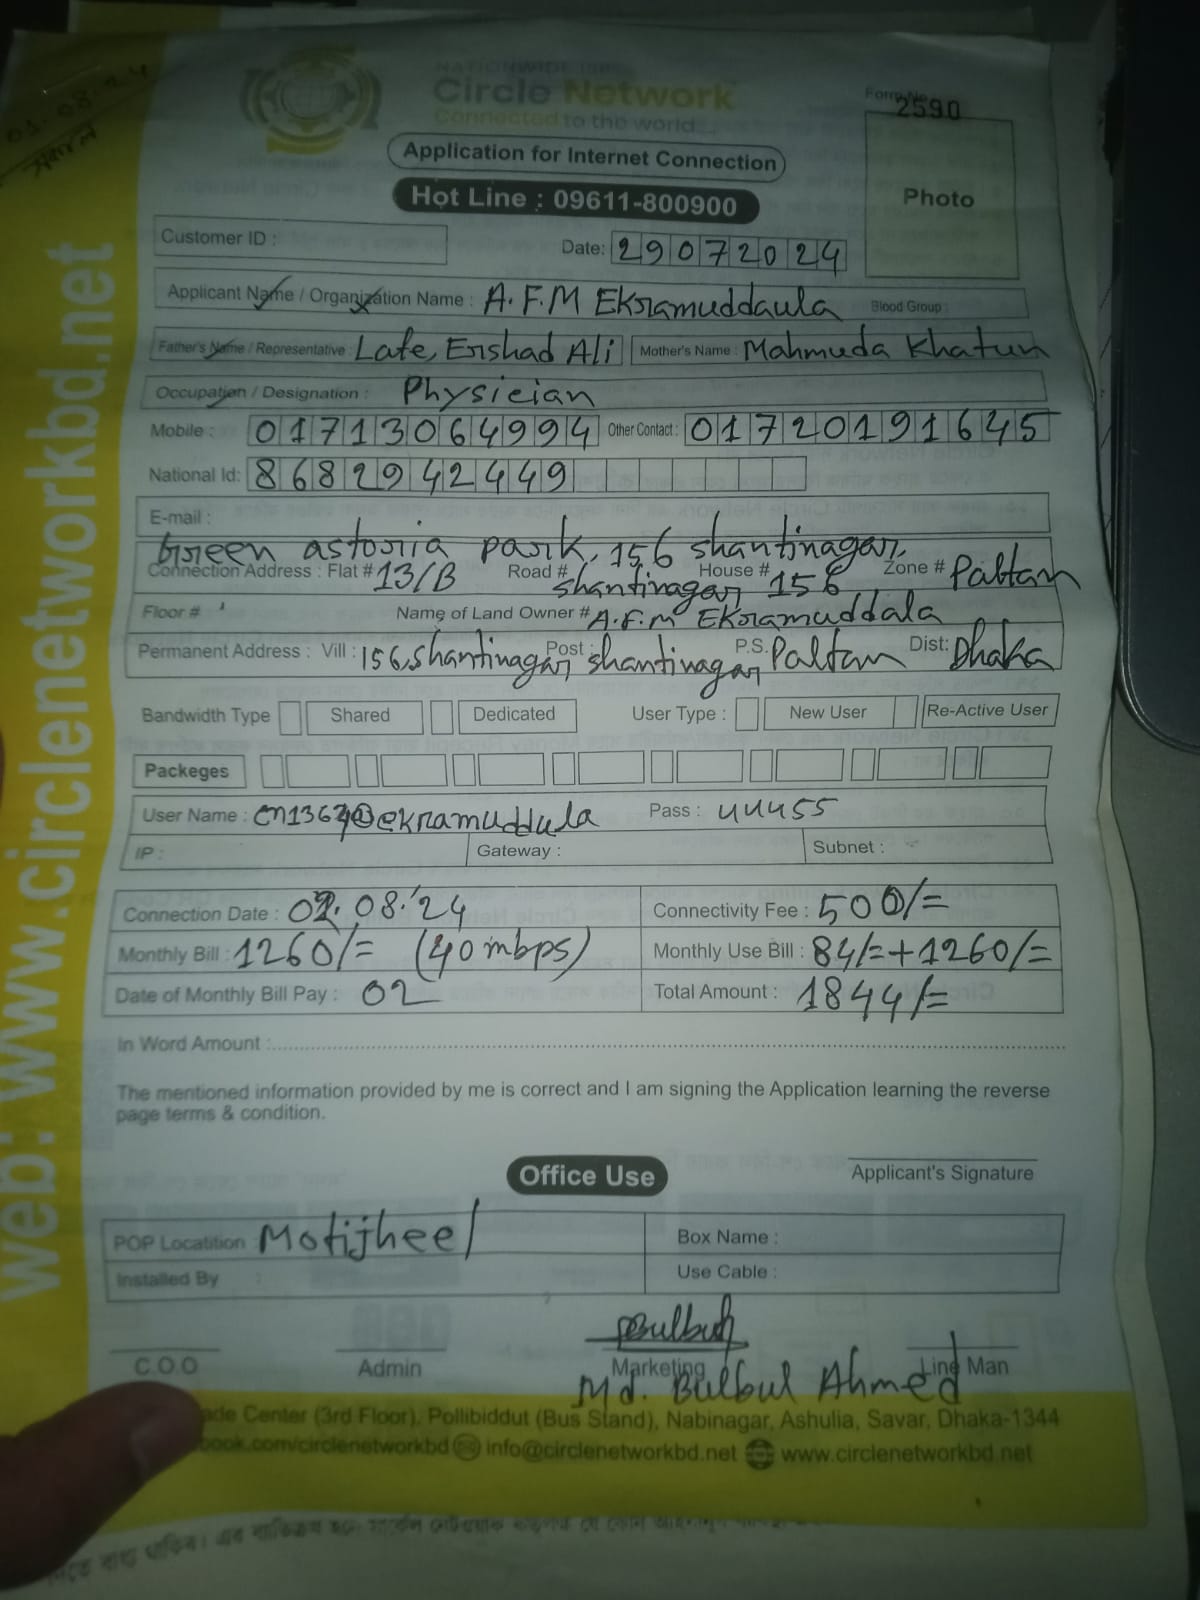 03.08.24
সকালে
NATIONWIDE ISP
Circle Network
Connected to the world...
Form No
2590
Application for Internet Connection
Hot Line : 09611-800900
Photo
Customer ID :
Date: 29072024
Applicant Name / Organization Name : A.F.M Ekramuddaula Blood Group :
Father's Name / Representative : Late, Ershad Ali Mother's Name : Mahmuda Khatun
Occupation / Designation : Physician
Mobile : 01713064994 Other Contact : 01720191645
National Id: 8682942449
E-mail :
Green astoria park, 156 shantinagar,
Connection Address : Flat # 13/B Road # shantinagar House # 156 Zone # Paltan
Floor # Name of Land Owner # A.F.M Ekramuddala
Permanent Address : Vill : 156, shantinagar Post : shantinagar P.S. Paltan Dist: Dhaka
Bandwidth Type Shared Dedicated User Type : New User Re-Active User
Packeges
User Name : cn1367@ekramuddula Pass : uuu55
IP : Gateway : Subnet :
Connection Date : 02.08.'24 Connectivity Fee : 500/=
Monthly Bill : 1260/= (40 mbps) Monthly Use Bill : 84/=+1260/=
Date of Monthly Bill Pay : 02 Total Amount : 1844/=
In Word Amount :
The mentioned information provided by me is correct and I am signing the Application learning the reverse
page terms & condition.
Office Use
Applicant's Signature
POP Locatition Motijheel Box Name :
Installed By : Use Cable :
Bulbul
C.O.O Admin Marketing Line Man
Md. Bulbul Ahmed
ade Center (3rd Floor), Pollibiddut (Bus Stand), Nabinagar, Ashulia, Savar, Dhaka-1344
book.com/circlenetworkbd info@circlenetworkbd.net www.circlenetworkbd.net
web: www.circlenetworkbd.net